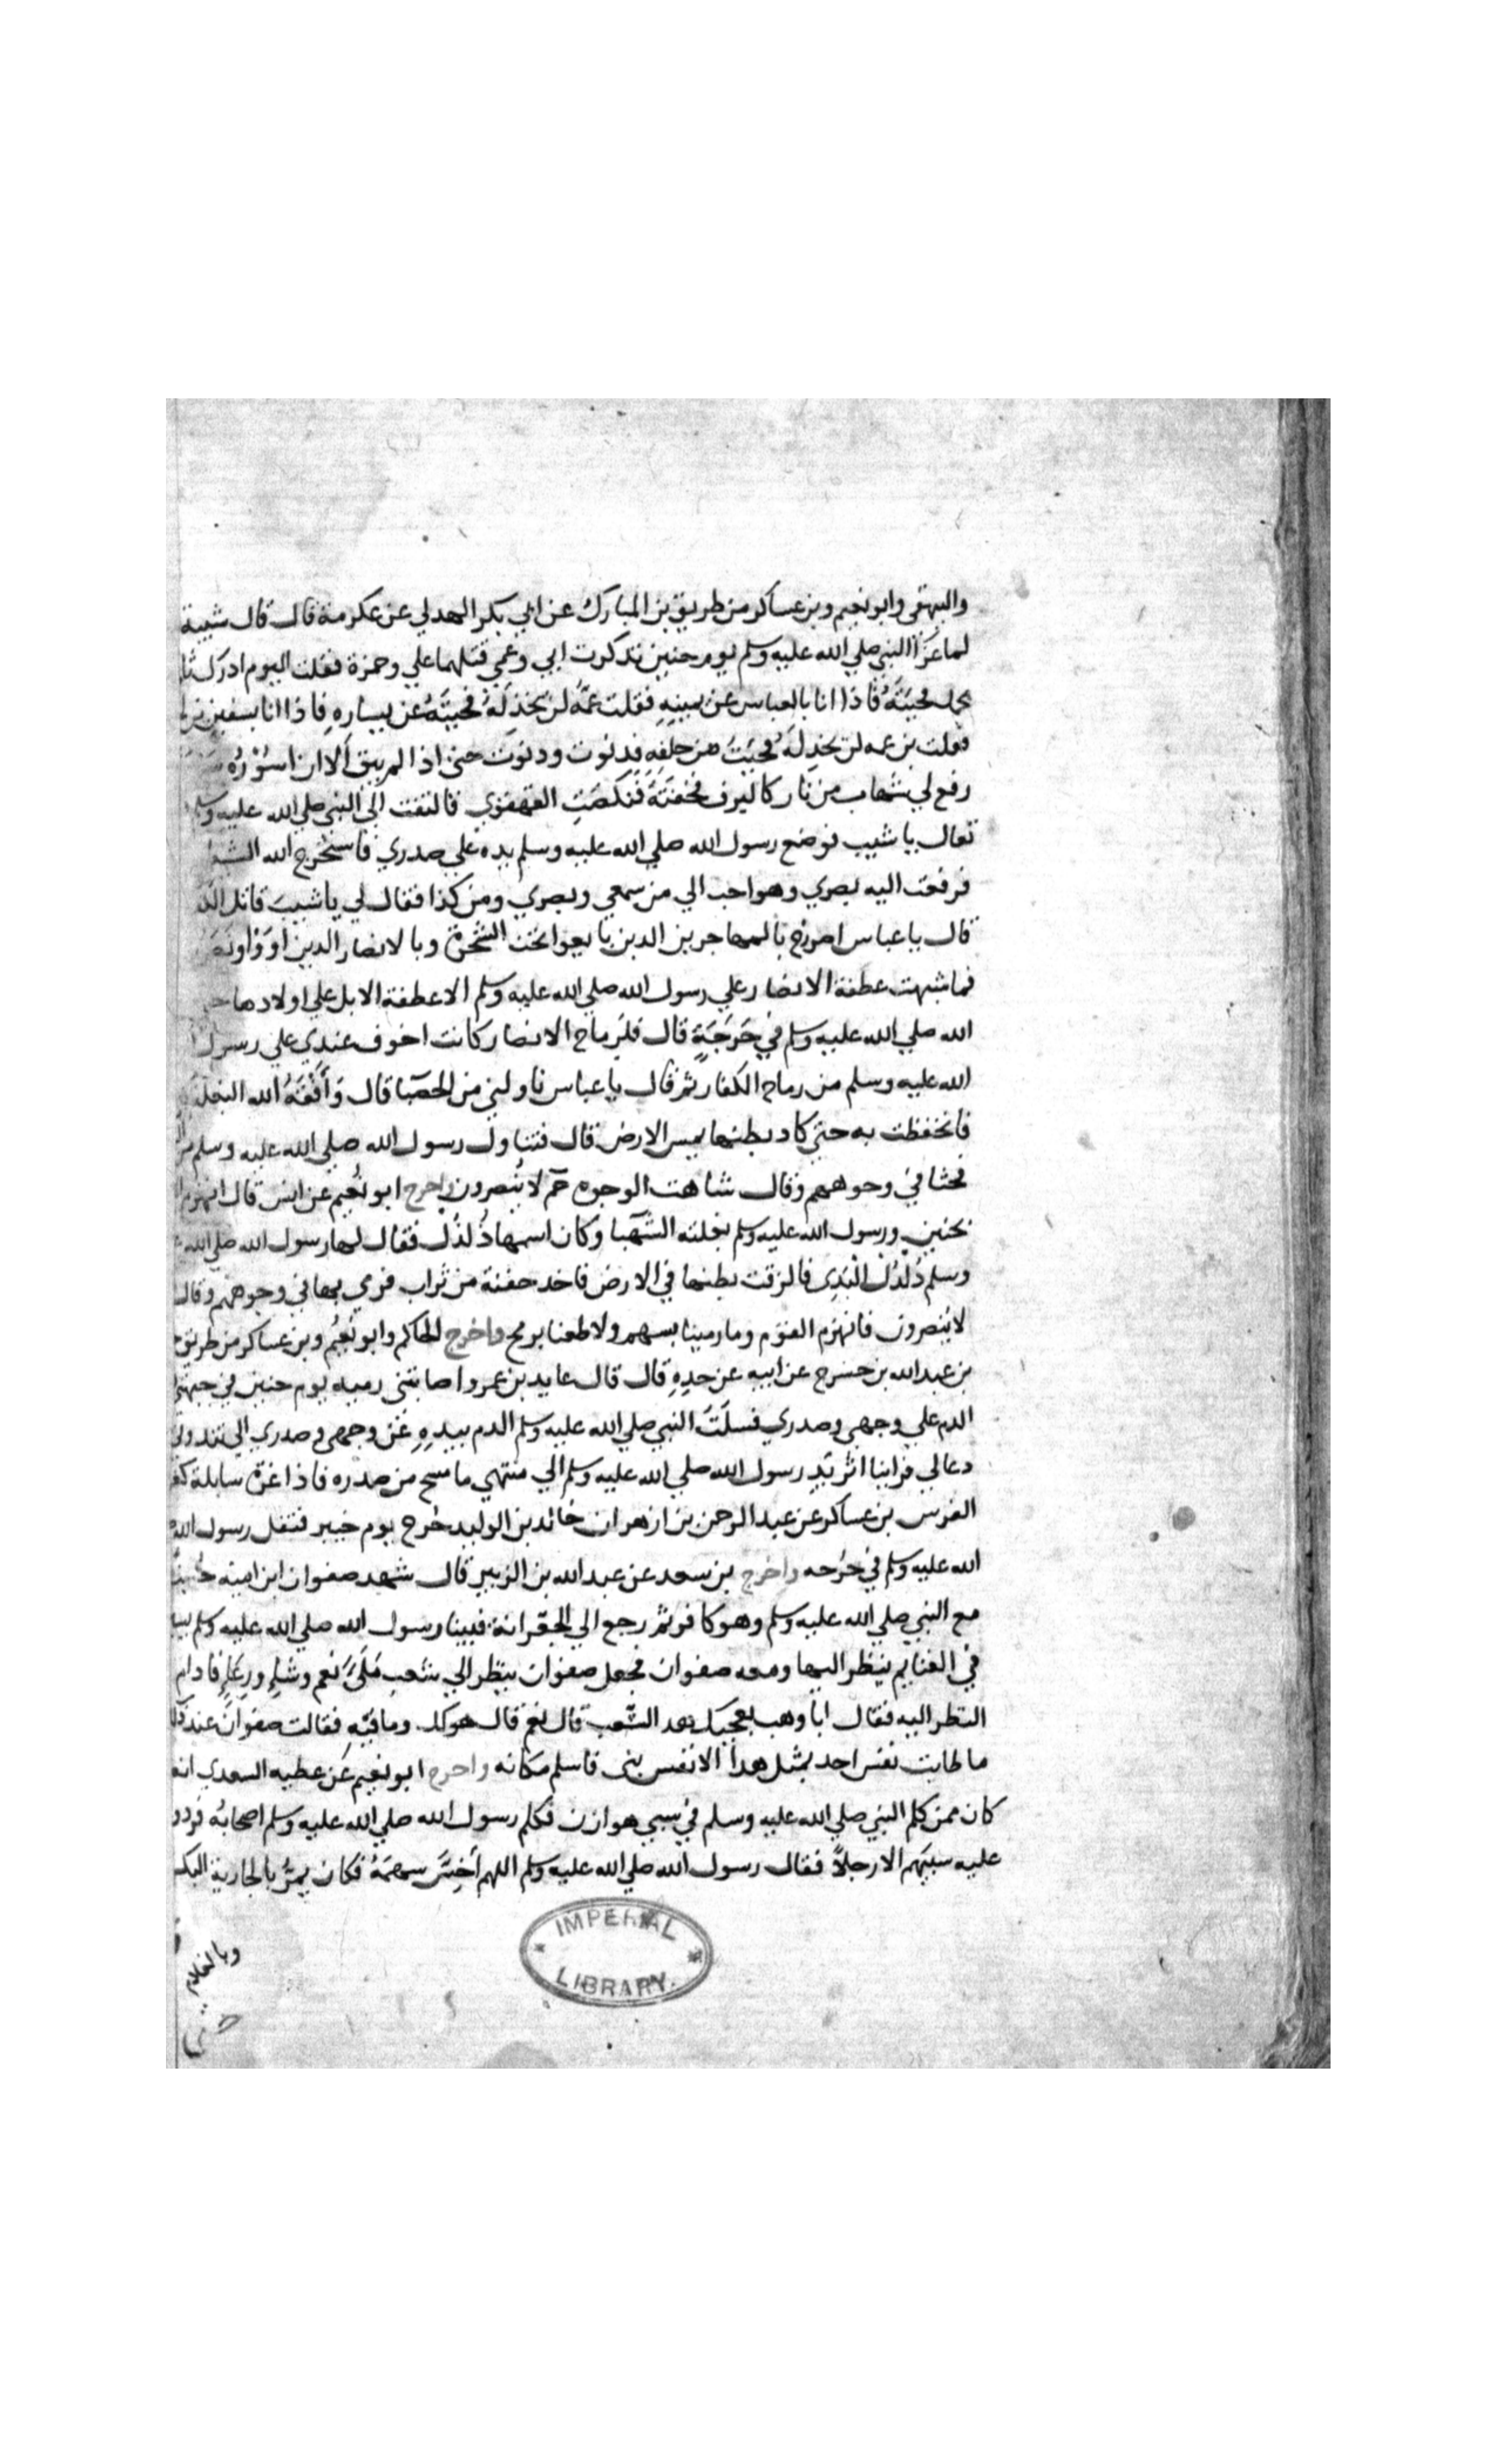 والبيهقي وابو نعيم وبن عساكر من طريق بن المبارك عن ابي بكر الهدلي عن عكرمة قال قال شيبة
لما غزا النبي صلي الله عليه وسلم يوم حنين تذكرت ابي وعمي قتلهما علي وحمزة فقلت اليوم ادرك
فجيتَهُ فاذا انا بالعباس عن يمينِهِ فقلت عمَّه لن يخذلَهُ فجيتَهُ عن يسارهِ فاذا انا بسفين
فقلت بن عمه لن يخذلَهُ فجيتَ من خلفِهِ فدنوت ودنوت حتي اذا لم يبق الا ان اسُوْرُه
رفع لي شهاب من نار كالبرف فخفتَهُ فنكصَتِ القهقري فالتفت الي النبي صلي الله عليه وسلم
تعال يا شيب فوضع رسول الله صلي الله عليه وسلم يده علي صدري فاستخرج الله
فرفعت اليه بصري وهو احب الي من سمعي وبصري ومن كذا فقال لي يا شيب قاتل
قال يا عباس اصرخ بالمهاجرين الدين بايعوا تحت الشجرة وبالانصار الدين اووا
فما شبهت عطفة الانصار علي رسول الله صلي الله عليه وسلم الا عطفة الابل علي اولادها
الله صلي الله عليه وسلم في حَرَجَةٍ قال فلرماح الانصار كانت اخوف عندي علي رسول
الله عليه وسلم من رماح الكفار ثم قال يا عباس ناولني من الحصبا قال وَاَفْقَهُ الله البغلة
فانخفظت به حتي كاد بطنها يمس الارض قال فتناول رسول الله صلي الله عليه وسلم
فحثا في وجوههم وقال شاهت الوجوه حم لا يُنصرون واخرج ابو نُعيم عن انس قال انهزم
بحنين ورسول الله عليه وسلم بغلته الشهبا وكان اسمها دُلدُل فقال لها رسول الله صلي الله
وسلم دُلدُل البَدِى فالزقت بطنها في الارض فاخد حفنة من تراب فرمي بها في وجوههم وقال
لا يُنصرون فانهزم القوْم وما رمينا بسهم ولا طعنا برمح واخرج الحاكم وابو نُعيْم وبن عساكر من طريق
بن عبد الله بن حشرج عن ابيه عن جدِهِ قال قال عايد بن عمرو اصابتنى رميه يوم حنين في جبهتي
الدم علي وجهي وصدري فسلَتَ النبي صلي الله عليه وسلم الدم بيدِهِ عَن وجهى وصدري الي
دعا لي فراينا اثر يَدِ رسول الله صلي الله عليه وسلم الي منتهي ما مسح من صدره فاذا غرة سابلة
الفرس بن عساكر عن عبد الرحمن بن ازهر ان خالد بن الوليد خرج يوم خيبر فتفل رسول الله
الله عليه وسلم في جُرحه واخرج بن سعد عن عبد الله بن الزبير قال شهد صفوان ابن اميه
مع النبي صلي الله عليه وسلم وهو كافر ثم رجع الي الجعرانة فبينا رسول الله صلي الله عليه وسلم
في الغنايم ينظر اليها ومعه صفوان فجعل صفوان ينظر الي شعب مَلَىَ نعم وشاءٍ ورعَاءٍ فادام
النظر اليه فقال ابا وهب يعجبك هد الشعب قال نعم قال هو لك وما فيهِ فقالت صفوان عند
ما طابت نفس احد بمثل هدا الا نفس بنى فاسلم مكانه واخرج ابو نعيم عَن عطيه السعدي
كان ممن كلم النبي صلي الله عليه وسلم في سبي هوازن فكلم رسول الله صلي الله عليه وسلم اصحابُه
عليه سبيَهم الا رجلاً فقال رسول الله صلي الله عليه وسلم اللهم اَخِسَ سهمَهُ فكان يمرُ بالجارية
وبالغلام
IMPERIAL
LIBRARY.